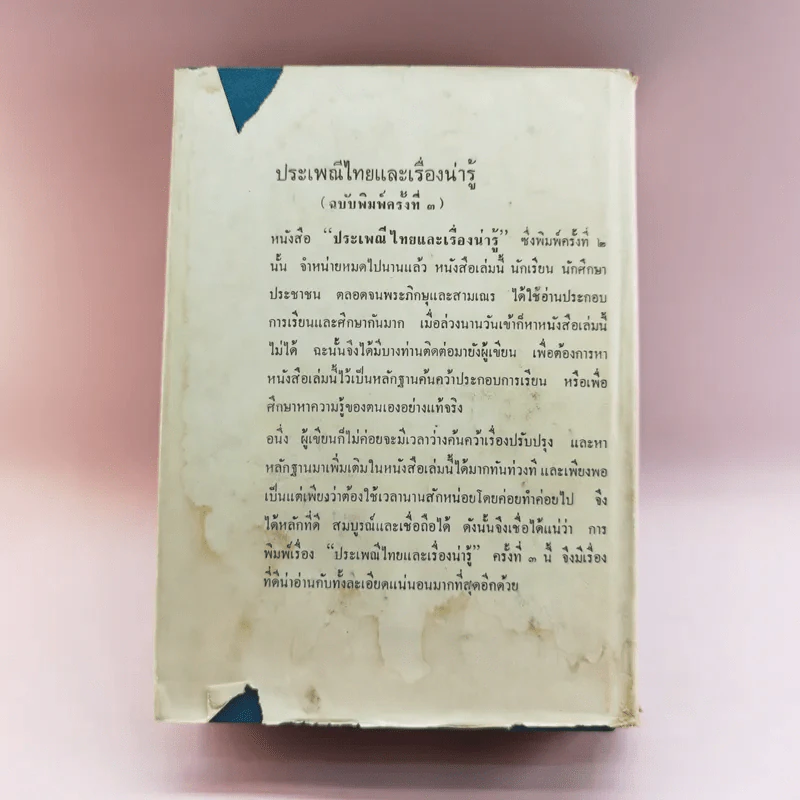 ประเพณีไทยและเรื่องน่ารู้
(ฉบับพิมพ์ครั้งที่ ๓)
หนังสือ “ประเพณีไทยและเรื่องน่ารู้” ซึ่งพิมพ์ครั้งที่ ๒
นั้น จำหน่ายหมดไปนานแล้ว หนังสือเล่มนี้ นักเรียน นักศึกษา
ประชาชน ตลอดจนพระภิกษุและสามเณร ได้ใช้อ่านประกอบ
การเรียนและศึกษากันมาก เมื่อล่วงนานวันเข้าก็หาหนังสือเล่มนี้
ไม่ได้ ฉะนั้นจึงได้มีบางท่านติดต่อมายังผู้เขียน เพื่อต้องการหา
หนังสือเล่มนี้ไว้เป็นหลักฐานค้นคว้าประกอบการเรียน หรือเพื่อ
ศึกษาหาความรู้ของตนเองอย่างแท้จริง
อนึ่ง ผู้เขียนก็ไม่ค่อยจะมีเวลาว่างค้นคว้าเรื่องปรับปรุง และหา
หลักฐานมาเพิ่มเติมในหนังสือเล่มนี้ได้มากทันท่วงที และเพียงพอ
เป็นแต่เพียงว่าต้องใช้เวลานานสักหน่อยโดยค่อยทำค่อยไป จึง
ได้หลักที่ดี สมบูรณ์และเชื่อถือได้ ดังนั้นจึงเชื่อได้แน่ว่า การ
พิมพ์เรื่อง “ประเพณีไทยและเรื่องน่ารู้” ครั้งที่ ๓ นี้ จึงมีเรื่อง
ที่ดีน่าอ่านกับทั้งละเอียดแน่นอนมากที่สุดอีกด้วย